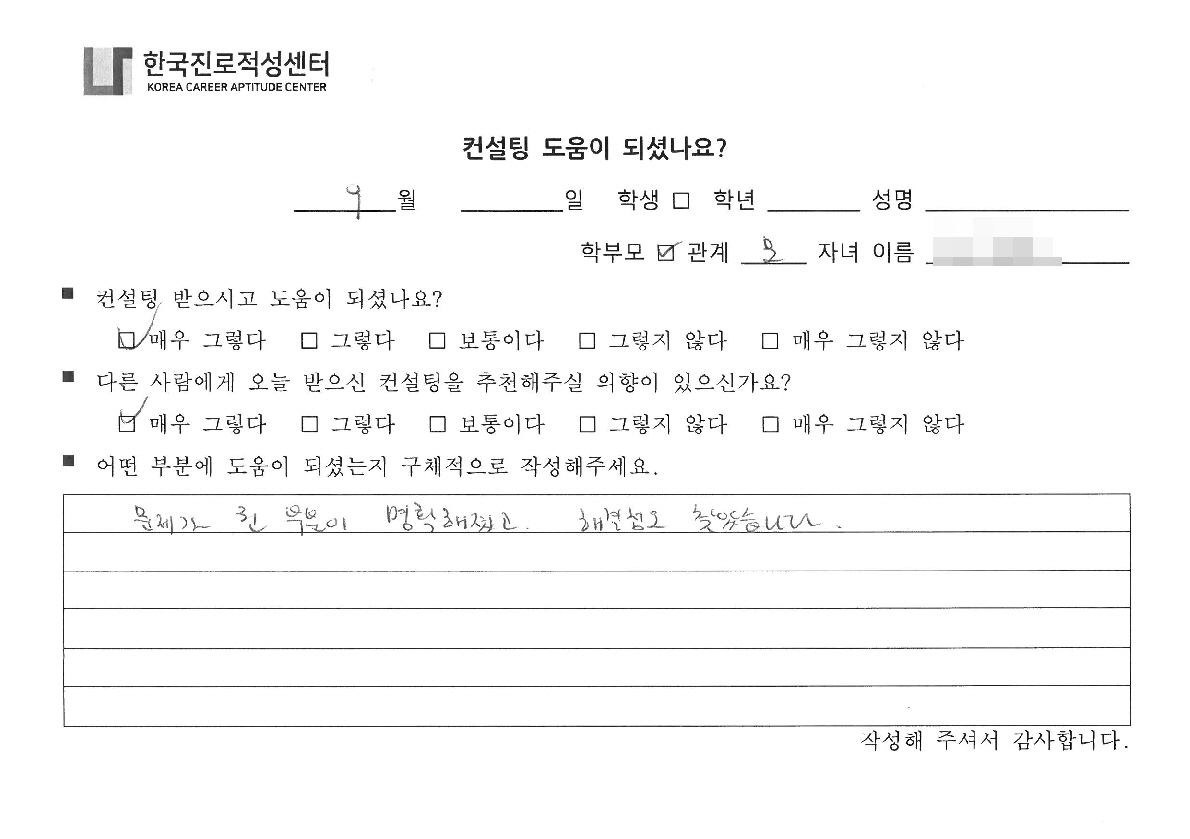 한국진로적성센터
KOREA CAREER APTITUDE CENTER
컨설팅 도움이 되셨나요?
9 월 일 학생 □ 학년 성명
학부모 ☑ 관계 모 자녀 이름
■ 컨설팅 받으시고 도움이 되셨나요?
☑ 매우 그렇다 □ 그렇다 □ 보통이다 □ 그렇지 않다 □ 매우 그렇지 않다
■ 다른 사람에게 오늘 받으신 컨설팅을 추천해주실 의향이 있으신가요?
☑ 매우 그렇다 □ 그렇다 □ 보통이다 □ 그렇지 않다 □ 매우 그렇지 않다
■ 어떤 부분에 도움이 되셨는지 구체적으로 작성해주세요.
문제가 된 부분이 명확해졌고. 해결점도 찾았습니다.
작성해 주셔서 감사합니다.